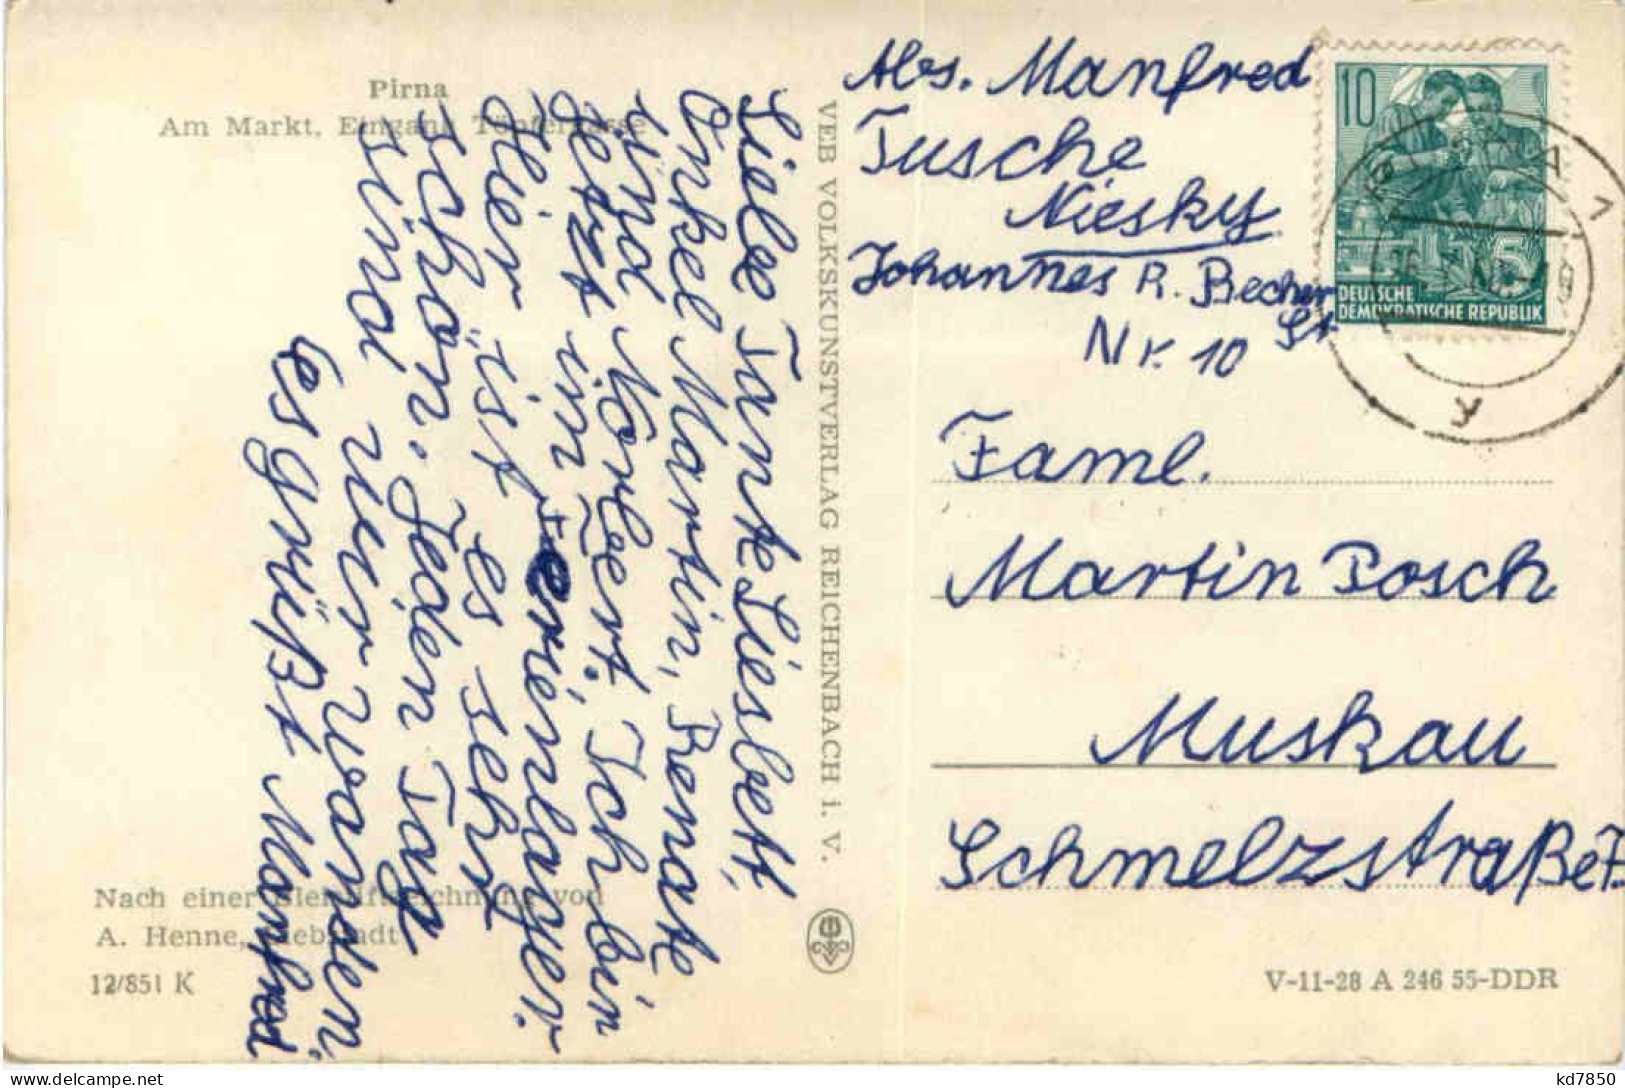 Pirna
Am Markt, Eingang Töpfergasse
Liebe Tante Liesbett,
Onkel Martin, Renate
und Norbert. Ich bin
jetzt im Ferienlager.
Hier ist es sehr
schön. Jeden Tag
sind wir wandern.
Es grüßt Manfred
Nach einer Bleistiftzeichnung von
A. Henne, Liebstadt
12/851 K
VEB VOLKSKUNSTVERLAG REICHENBACH i. V.
Abs. Manfred
Tusche
Niesky
Johannes R. Becher
St.
Nr. 10
10
5
DEUTSCHE
DEMOKRATISCHE REPUBLIK
PIRNA 1
y
Faml.
Martin Posch
Muskau
Schmelzstraße 7.
V-11-28 A 246 55-DDR
kd7850